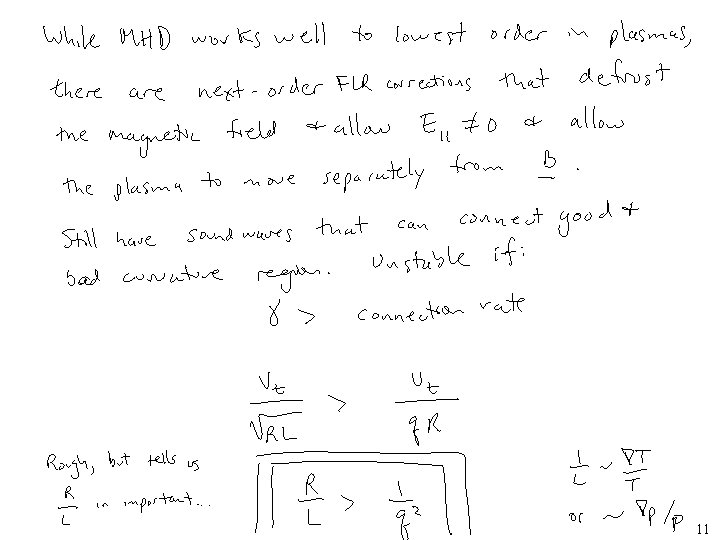 While MHD works well to lowest order in plasmas,
there are next-order FLR corrections that defrost
the magnetic field & allow E|| ≠ 0 & allow
the plasma to move separately from B.
Still have sound waves that can connect good &
bad curvature region. Unstable if:
γ > connection rate
V_t / √RL > V_t / qR
Rough, but tells us
R/L in important...
R/L > 1/q²
1/L ~ ∇T/T
or ~ ∇p/p
11